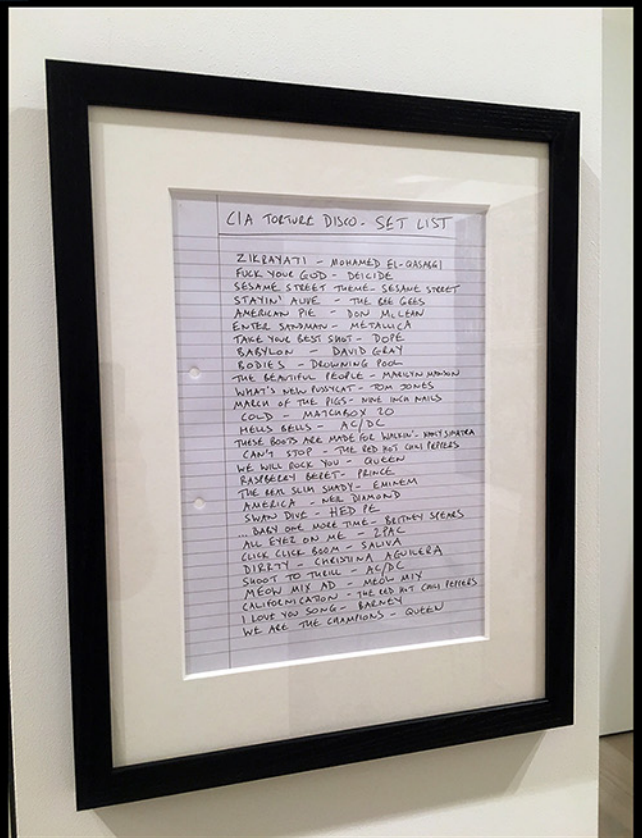 CIA TORTURE DISCO - SET LIST
ZIKRAYATI - MOHAMED EL-QASABGI
FUCK YOUR GOD - DEICIDE
SESAME STREET THEME - SESAME STREET
STAYIN' ALIVE - THE BEE GEES
AMERICAN PIE - DON MCLEAN
ENTER SANDMAN - METALLICA
TAKE YOUR BEST SHOT - DOPE
BABYLON - DAVID GRAY
BODIES - DROWNING POOL
THE BEAUTIFUL PEOPLE - MARILYN MANSON
WHAT'S NEW PUSSYCAT - TOM JONES
MARCH OF THE PIGS - NINE INCH NAILS
COLD - MATCHBOX 20
HELLS BELLS - AC/DC
THESE BOOTS ARE MADE FOR WALKIN' - NANCY SINATRA
CAN'T STOP - THE RED HOT CHILI PEPPERS
WE WILL ROCK YOU - QUEEN
RASPBERRY BERET - PRINCE
THE REAL SLIM SHADY - EMINEM
AMERICA - NEIL DIAMOND
SWAN DIVE - HED PE
... BABY ONE MORE TIME - BRITNEY SPEARS
ALL EYEZ ON ME - 2PAC
CLICK CLICK BOOM - SALIVA
DIRRTY - CHRISTINA AGUILERA
SHOOT TO THRILL - AC/DC
MEOW MIX AD - MEOW MIX
CALIFORNICATION - THE RED HOT CHILI PEPPERS
I LOVE YOU SONG - BARNEY
WE ARE THE CHAMPIONS - QUEEN